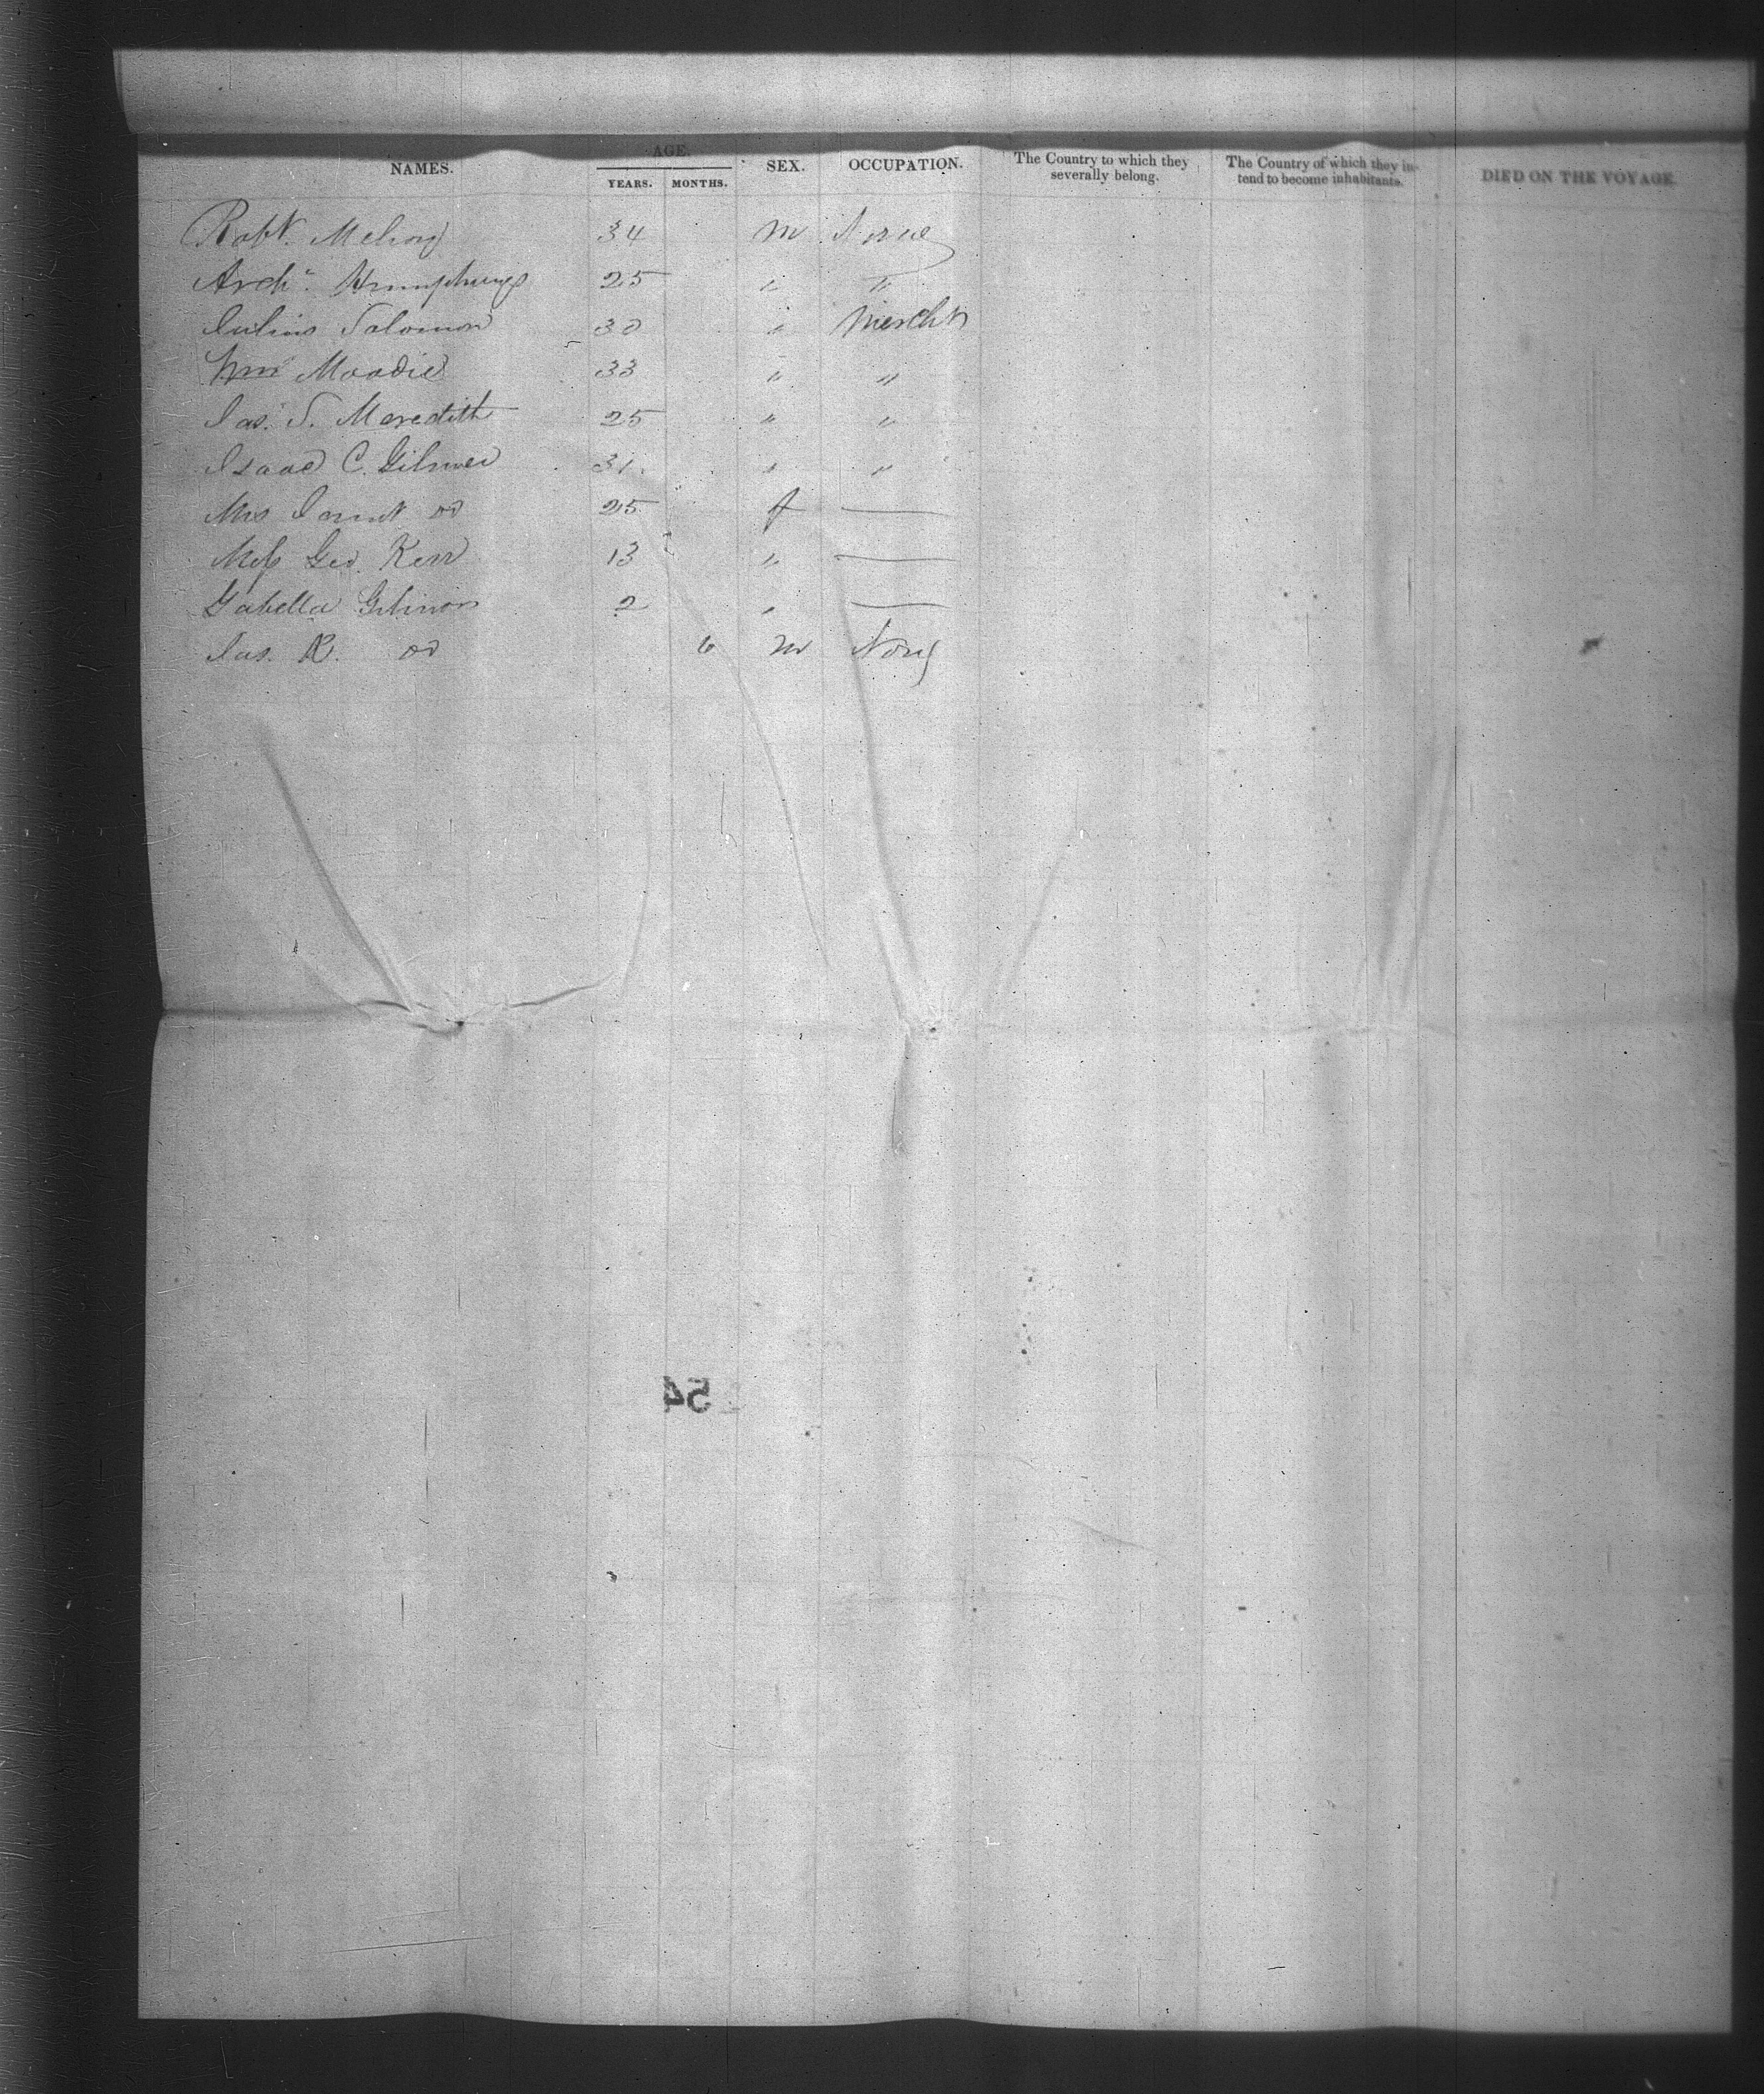 NAMES. AGE. YEARS. MONTHS. SEX. OCCUPATION. The Country to which they severally belong. The Country of which they intend to become inhabitants. DIED ON THE VOYAGE.
Robt. 34 M None
Archd. Humphreys 25 " "
Julius Salomon 30 " Mercht
Wm Moodie 33 " "
Jas. S. Meredith 25 " "
Isaac C. Gilmer 31 " "
Mrs Do 25 f —
Miss Geo. Kerr 13 " —
Isabella 2 " —
Jas. R. Do 6 M None
54